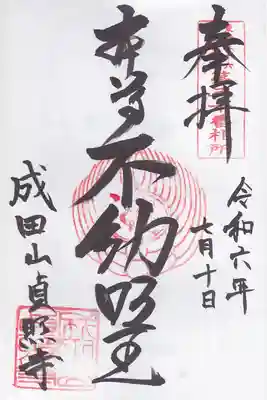 奉拝
令和六年
七月十日
本尊不動明王
成田山貞照寺